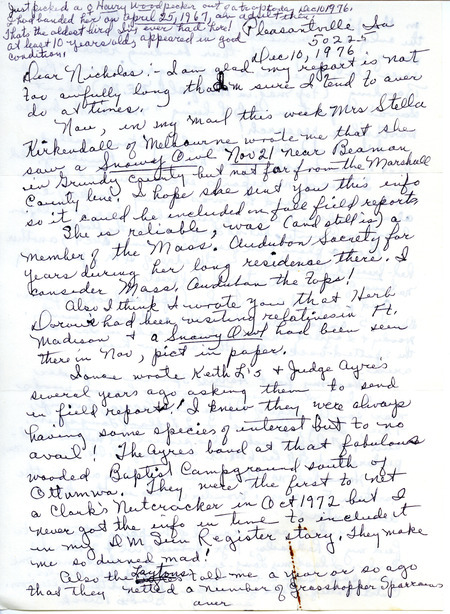 Just picked a ♀ Hairy Woodpecker out of a trap today Dec 10, 1976.
I had banded her on April 25, 1967, an adult then.
Thats the oldest bird I've ever had here!
at least 10 years old, appeared in good
condition!
Pleasantville, Ia
50225
Dec. 10, 1976
Dear Nicholas:- I am glad my report is not
too awfully long tho I'm sure I tend to over
do at times.
Now, in my mail this week Mrs Stella
Kirkendall of Melbourne wrote me that she
saw a Snowy Owl Nov 21 near Beaman
in Grundy County but not far from the Marshall
County line. I hope she sent you this info
so it could be included in fall field reports
She is reliable, was (and still is) a
member of the Mass. Audubon Society for
years during her long residence there. I
consider Mass. Audubon the tops!
Also I think I wrote you that Herb
Dorow's had been visiting relatives in Ft.
Madison & a Snowy Owl had been seen
there in Nov, pict in paper.
I once wrote Keith L's & Judge Ayres
several years ago asking them to send
in field reports! I knew they were always
having some species of interest but to no
avail! The Ayres band at that fabulous
wooded Baptist Campground south of
Ottumwa. They were the first to net
a Clark's Nutcracker in Oct 1972 but I
never got the info in time to include it
in my DM Sun Register story. They make
me so durned mad!
Also the Laytons told me a year or so ago
that they netted a number of Grasshopper Sparrows
over